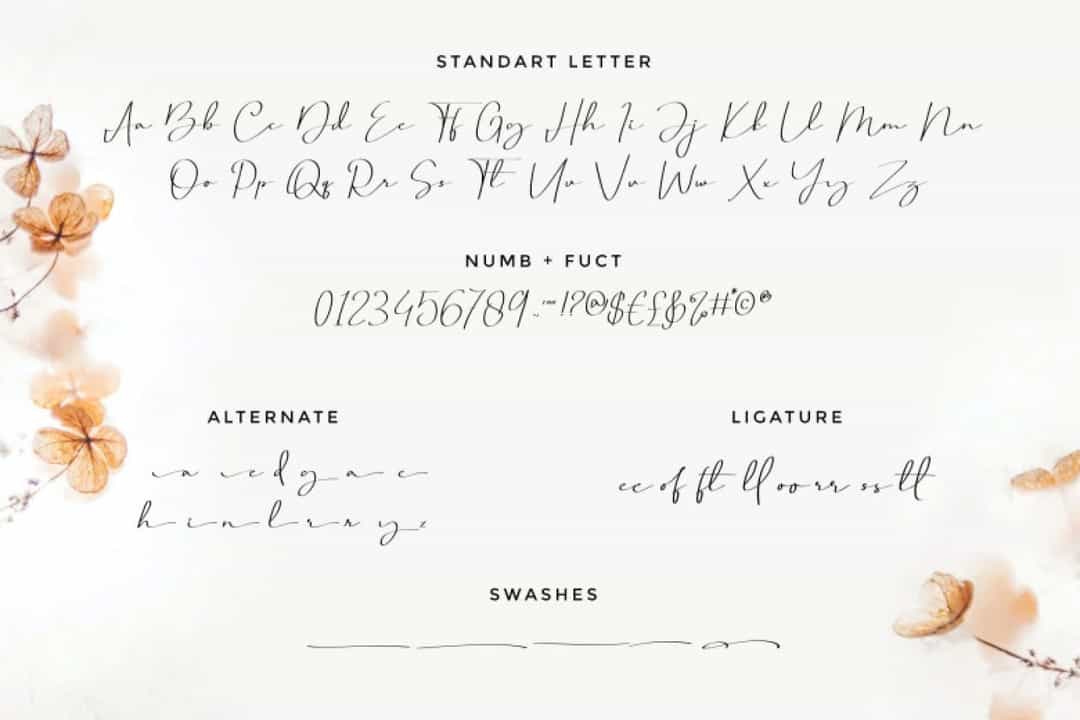 STANDART LETTER
Aa Bb Cc Dd Ee Ff Gg Hh Ii Jj Kk Ll Mm Nn
Oo Pp Qq Rr Ss Tt Uu Vv Ww Xx Yy Zz
NUMB + FUCT
0123456789.,:;""''!?@$€£&%#*©®
ALTERNATE
LIGATURE
a e d g a e
ee of ft ll oo rr ss tt
h i n l r r y z
SWASHES